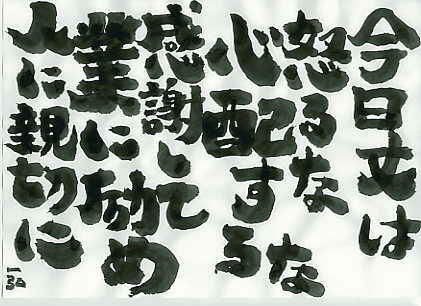 今日丈は
怒るな
心配するな
感謝して
業に励め
人に親切に